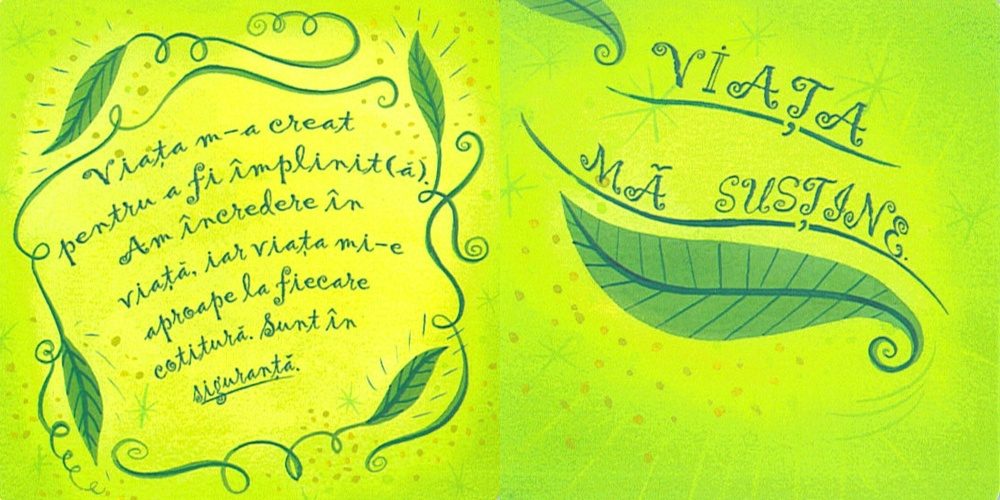 Viața m-a creat
pentru a fi împlinit(ă).
Am încredere în
viață, iar viața mi-e
aproape la fiecare
cotitură. Sunt în
siguranță.
VIAȚA
MĂ SUSȚINE.